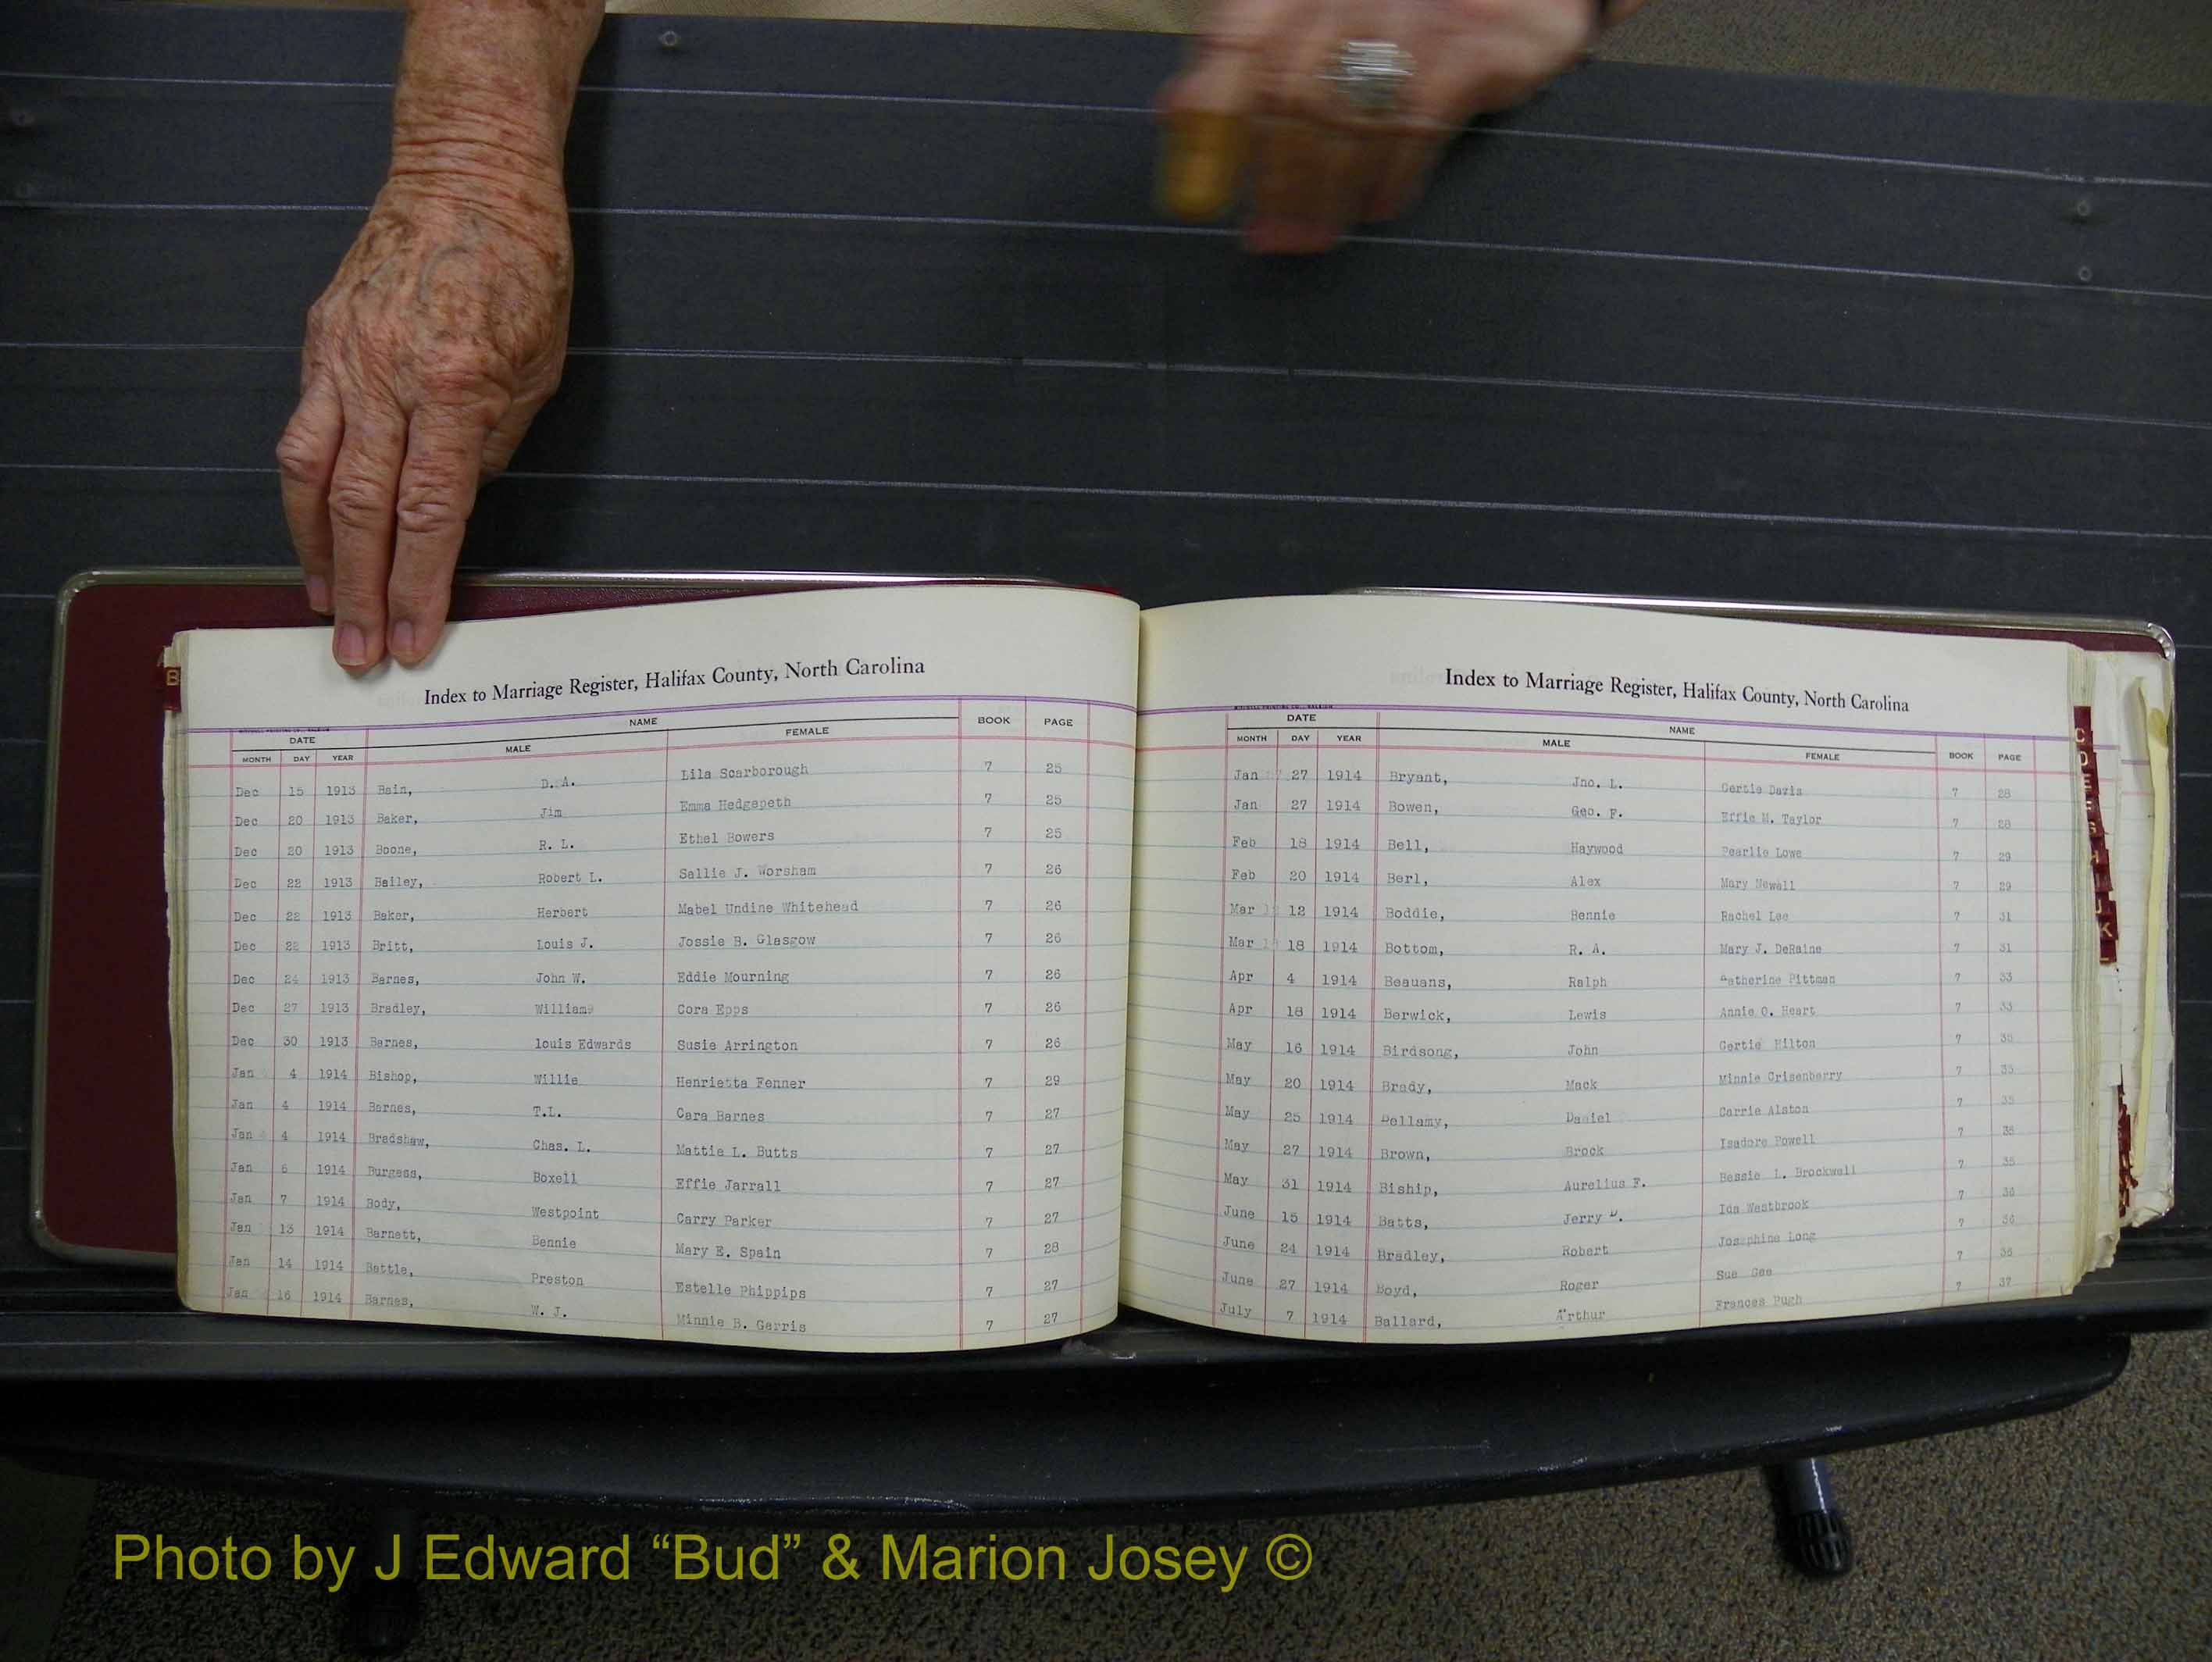 B
Index to Marriage Register, Halifax County, North Carolina
DATE NAME BOOK PAGE
MONTH DAY YEAR MALE FEMALE
Dec 15 1913 Bain, D. A. Lila Scarborough 7 25
Dec 20 1913 Baker, Jim Emma Hedgepeth 7 25
Dec 20 1913 Boone, R. L. Ethel Bowers 7 25
Dec 22 1913 Bailey, Robert L. Sallie J. Worsham 7 26
Dec 22 1913 Baker, Herbert Mabel Undine Whitehead 7 26
Dec 1913 Britt, Louis J. Jossie B. Glasgow 7 26
Dec 24 1913 Barnes, John W. Eddie Mourning 7 26
Dec 27 1913 Bradley, Williams Cora Epps 7 26
Dec 30 1913 Barnes, louis Edwards Susie Arrington 7 26
Jan 4 1914 Bishop, Willie Henrietta Fenner 7 29
Jan 4 1914 Barnes, T.L. Cara Barnes 7 27
Jan 4 1914 Bradshaw, Chas. L. Mattie L. Butts 7 27
Jan 6 1914 Burgess, Boxell Effie Jarrall 7 27
Jan 7 1914 Body, Westpoint Carry Parker 7 27
Jan 13 1914 Barnett, Bennie Mary E. Spain 7 28
Jan 14 1914 Battle, Preston Estelle Phippips 7 27
Jan 16 1914 Barnes, W. J. Minnie B. Garris 7 27
Index to Marriage Register, Halifax County, North Carolina
DATE NAME
MONTH DAY YEAR MALE FEMALE BOOK PAGE
Jan 27 1914 Bryant, Jno. L. Gertie Davis 7 28
Jan 27 1914 Bowen, Geo. F. Effie M. Taylor 7 28
Feb 18 1914 Bell, Haywood Pearlie Lowe 7 29
Feb 20 1914 Berl, Alex Mary Newell 7 29
Mar 12 1914 Boddie, Bennie Rachel Lee 7 31
Mar 18 1914 Bottom, R. A. Mary J. DeRaine 7 31
Apr 4 1914 Beauans, Ralph Catherine Pittman 7 33
Apr 18 1914 Berwick, Lewis Annie O. Heart 7 33
May 16 1914 Birdsong, John Gertie Hilton 7 35
May 20 1914 Brady, Mack Minnie Crisenberry 7 35
May 25 1914 Bellamy, Daniel Carrie Alston 7 35
May 27 1914 Brown, Brock Isadore Powell 7 35
May 31 1914 Biship, Aurelius F. Bessie L. Brockwell 7 35
June 15 1914 Batts, Jerry D. Ida Westbrook 7 36
June 24 1914 Bradley, Robert Josephine Long 7 36
June 27 1914 Boyd, Roger Sue Gee 7 36
July 7 1914 Ballard, Arthur Frances Pugh 7 37
C
D
E
K
Photo by J Edward “Bud” & Marion Josey ©